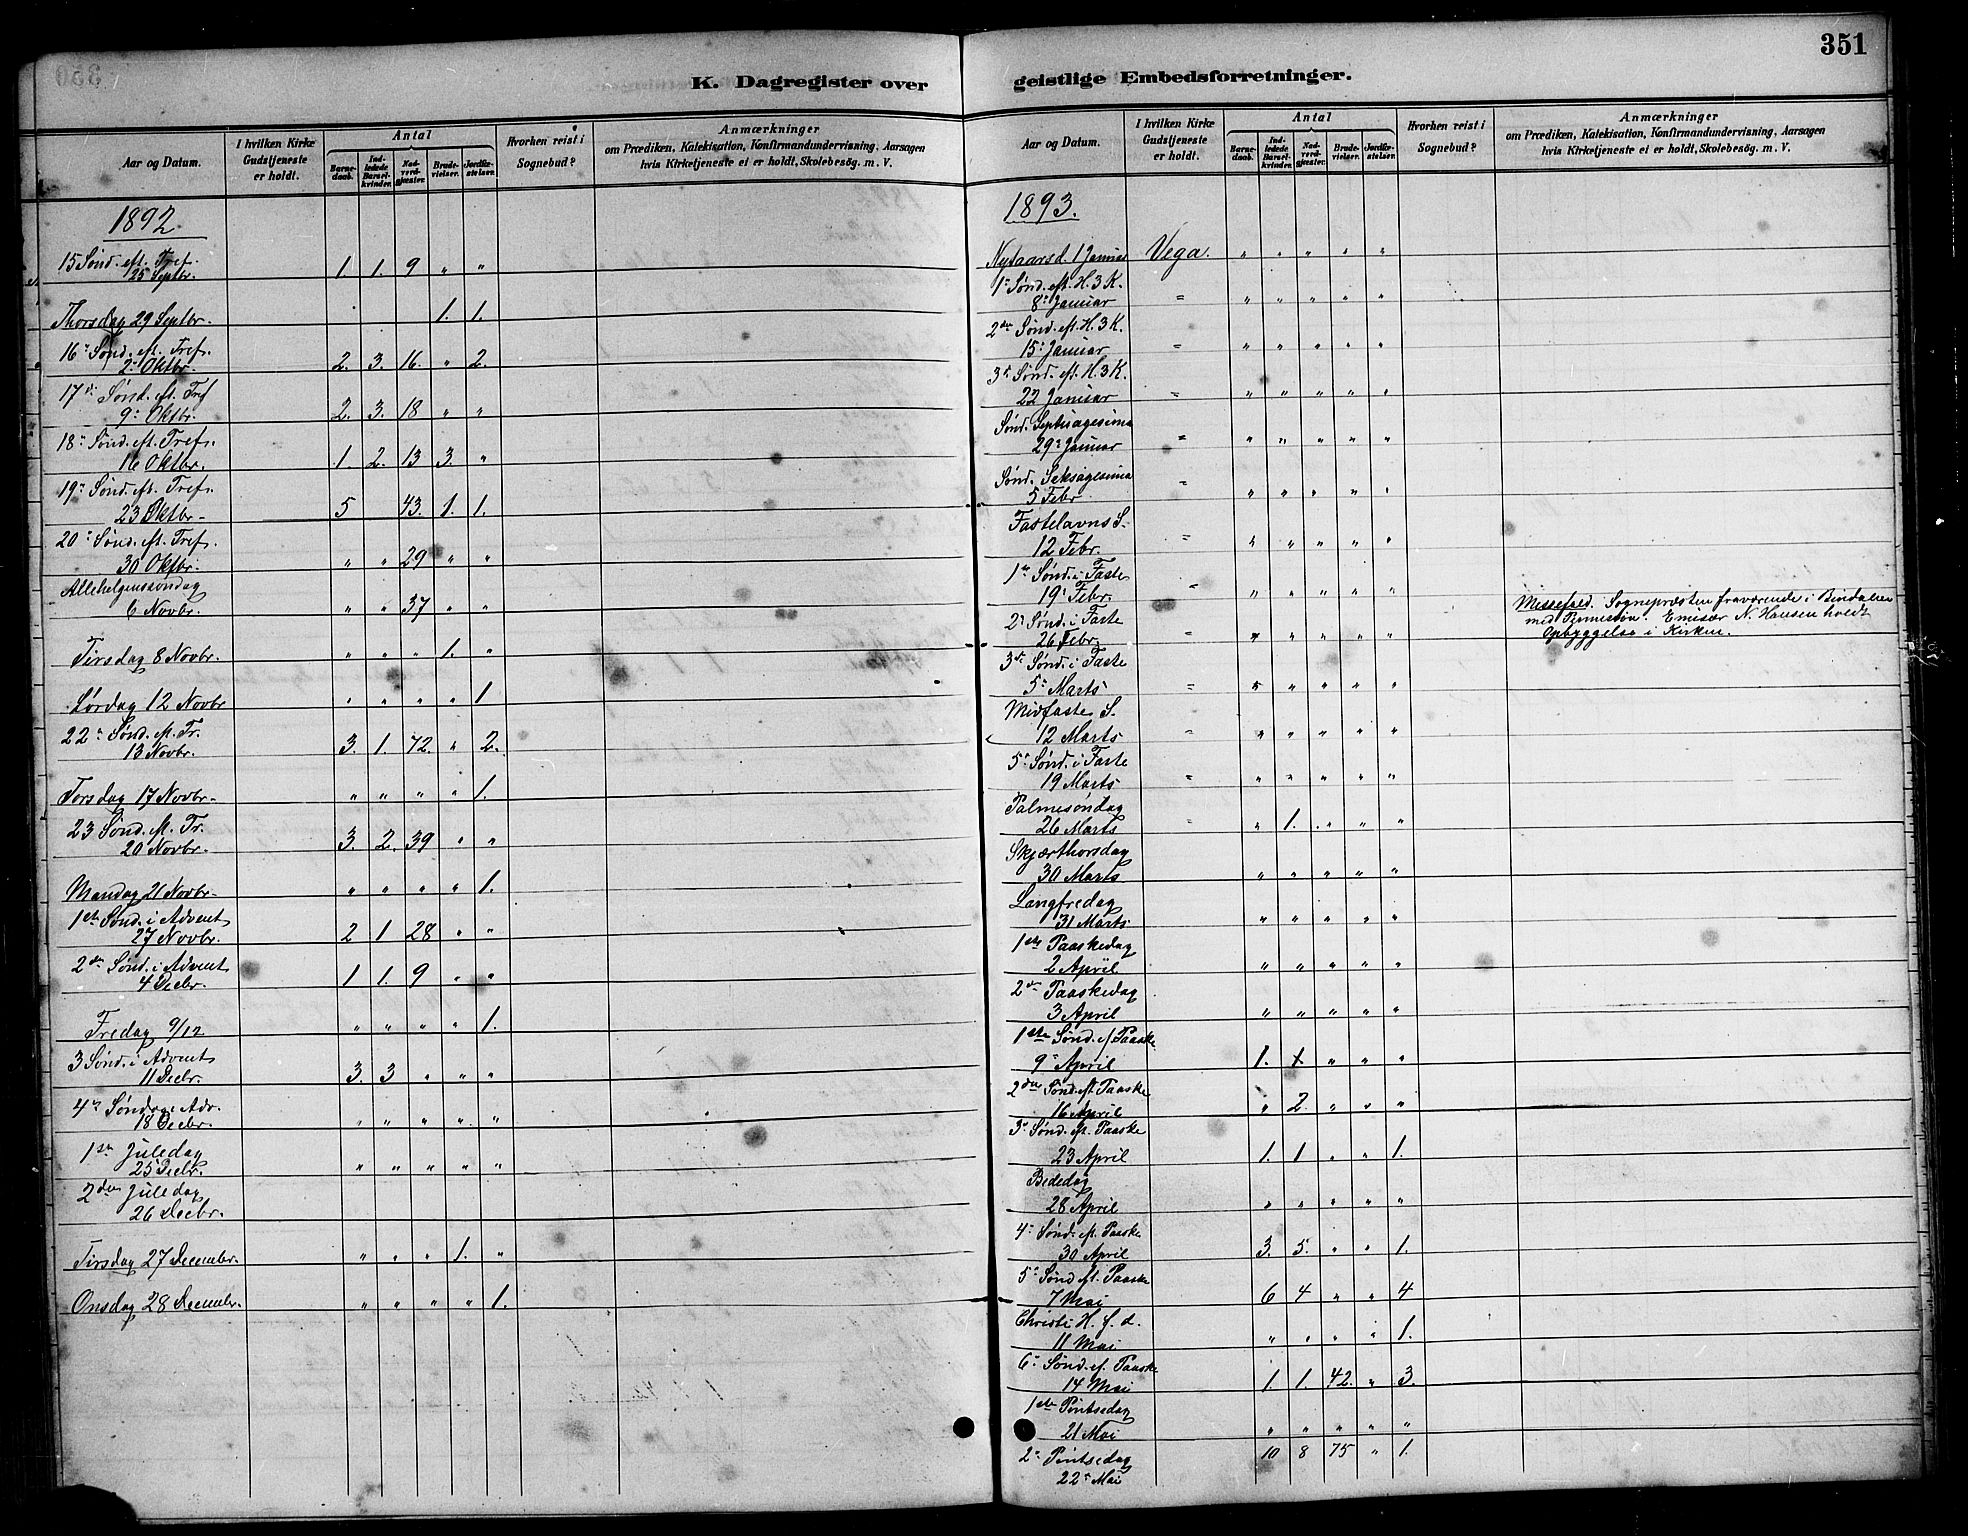 351
K. Dagregister over geistlige Embedsforretninger.
Aar og Datum.
I hvilken Kirke Gudstjeneste er holdt.
Antal
Barnedaab.
Indledede Barselkvinder.
Nadverdgjæster.
Brudevielser.
Jordfæstelser.
Hvorhen reist i Sognebud?
Anmærkninger
om Prædiken, Katekisation, Konfirmandundervisning, Aarsagen
hvis Kirketjeneste ei er holdt, Skolebesøg. m. V.
1892.
15 Sønd. eft. Tref.
25 Septbr. 1 1. 9 " "
Thorsdag 29 Septbr. 1. 1.
16de Sønd. eft. Tref.
2de Oktbr. 2. 3. 16. " 2.
17de Sønd. eft. Tref
9: Oktbr. 2. 3. 18 " "
18: Sønd. eft. Tref.
16 Oktbr. 1. 2. 13 3. "
19: Sønd. eft. Tref.
23 Oktbr. 5 43. 1. 1.
20: Sønd. eft. Tref.
30 Oktbr. " " 29 " "
Allehelgenssøndag
6 Novbr. " " 37 " "
Tirsdag 8 Novbr. " " " 1. "
Lørdag 12 Novbr " " " " 1
22: Sønd. eft. Tr.
13 Novbr. 3. 1. 72 " 2.
Torsdag 17 Novbr. " " " " 1.
23 Sønd. eft. Tr.
20 Novbr. 3. 2. 39 " "
Mandag 21 Novbr. " " " " 1.
1ste Sønd. i Advent
27 Novbr. 2 1 28 " "
2den Sønd. i Advent
4 Decbr. 1 1. 9 " "
Fredag 9/12 " " " " 1.
3 Sønd. i Advent
11 Decbr. 3. 3 " " "
4de Søndag i Adv.
18 Decbr. " " " " "
1ste Juledag
25 Decbr. " " " " "
2den Juledag
26 Decbr.
Tirsdag 27 December. " " " 1. "
Onsdag 28 Decembr. " " " " 1.
Aar og Datum.
I hvilken Kirke Gudstjeneste er holdt.
Antal
Barnedaab.
Indledede Barselkvinder.
Nadverdgjæster.
Brudevielser.
Jordfæstelser.
Hvorhen reist i Sognebud?
Anmærkninger
om Prædiken, Katekisation, Konfirmandundervisning, Aarsagen
hvis Kirketjeneste ei er holdt, Skolebesøg. m. V.
1893.
Nytaarsd. 1 Januar Vega. " " " " "
1: Sønd. eft. H. 3 K.
8: Januar = " " " " "
2den Sønd. eft. H. 3 K.
15: Januar = " " " " "
3de Sønd. eft. H. 3 K.
22 Januar = " " " " "
Sønd. Septuagesima
29: Januar = " " " " "
Sønd. Seksagesima
5 Febr = " " " " "
Fastelavns S.
12 Febr. = " " " " "
1ste Sønd. i Faste
19: Febr. = " " " " "
2: Sønd. i Faste
26 Febr. = " " " " "
Messefald. Sognepræsten fraværende i Bindalen
med Tjeneste. Emisær N. Hansen holdt
Opbyggelse i Kirken.
3de Sønd. i Faste
5: Marts = " " " " "
Midfaste S.
12 Marts = " " " " "
5: Sønd. i Faste
19 Marts = " " " " "
Palmesøndag
26 Marts = " 1. " " "
Skjærthorsdag
30 Marts " " " " "
Langfredag
31 Marts " " " " "
1ste Paaskedag
2 April " " " " "
2den Paaskedag
3 April " " " " "
1ste Sønd. e/ Paaske
9: April 1. 1 " " "
2den Sønd. eft Paaske
16 April " 2. " " "
3: Sønd. eft. Paaske
23 April 1. 1 " " 1.
Bededag
28 April " " " " "
4: Sønd. eft. Paaske
30 April 3. 5. " " 1.
5: Sønd. eft. Paaske
7 Mai 6 4 " " 4
Christi H. f. d.
11 Mai " " " " 1.
6: Sønd. ef. Paaske
14 Mai 1. 1. 42. " 3.
1ste Pintsedag
21 Mai " " " " "
2: Pintsedag 10 8 75 " 1.
22: Mai